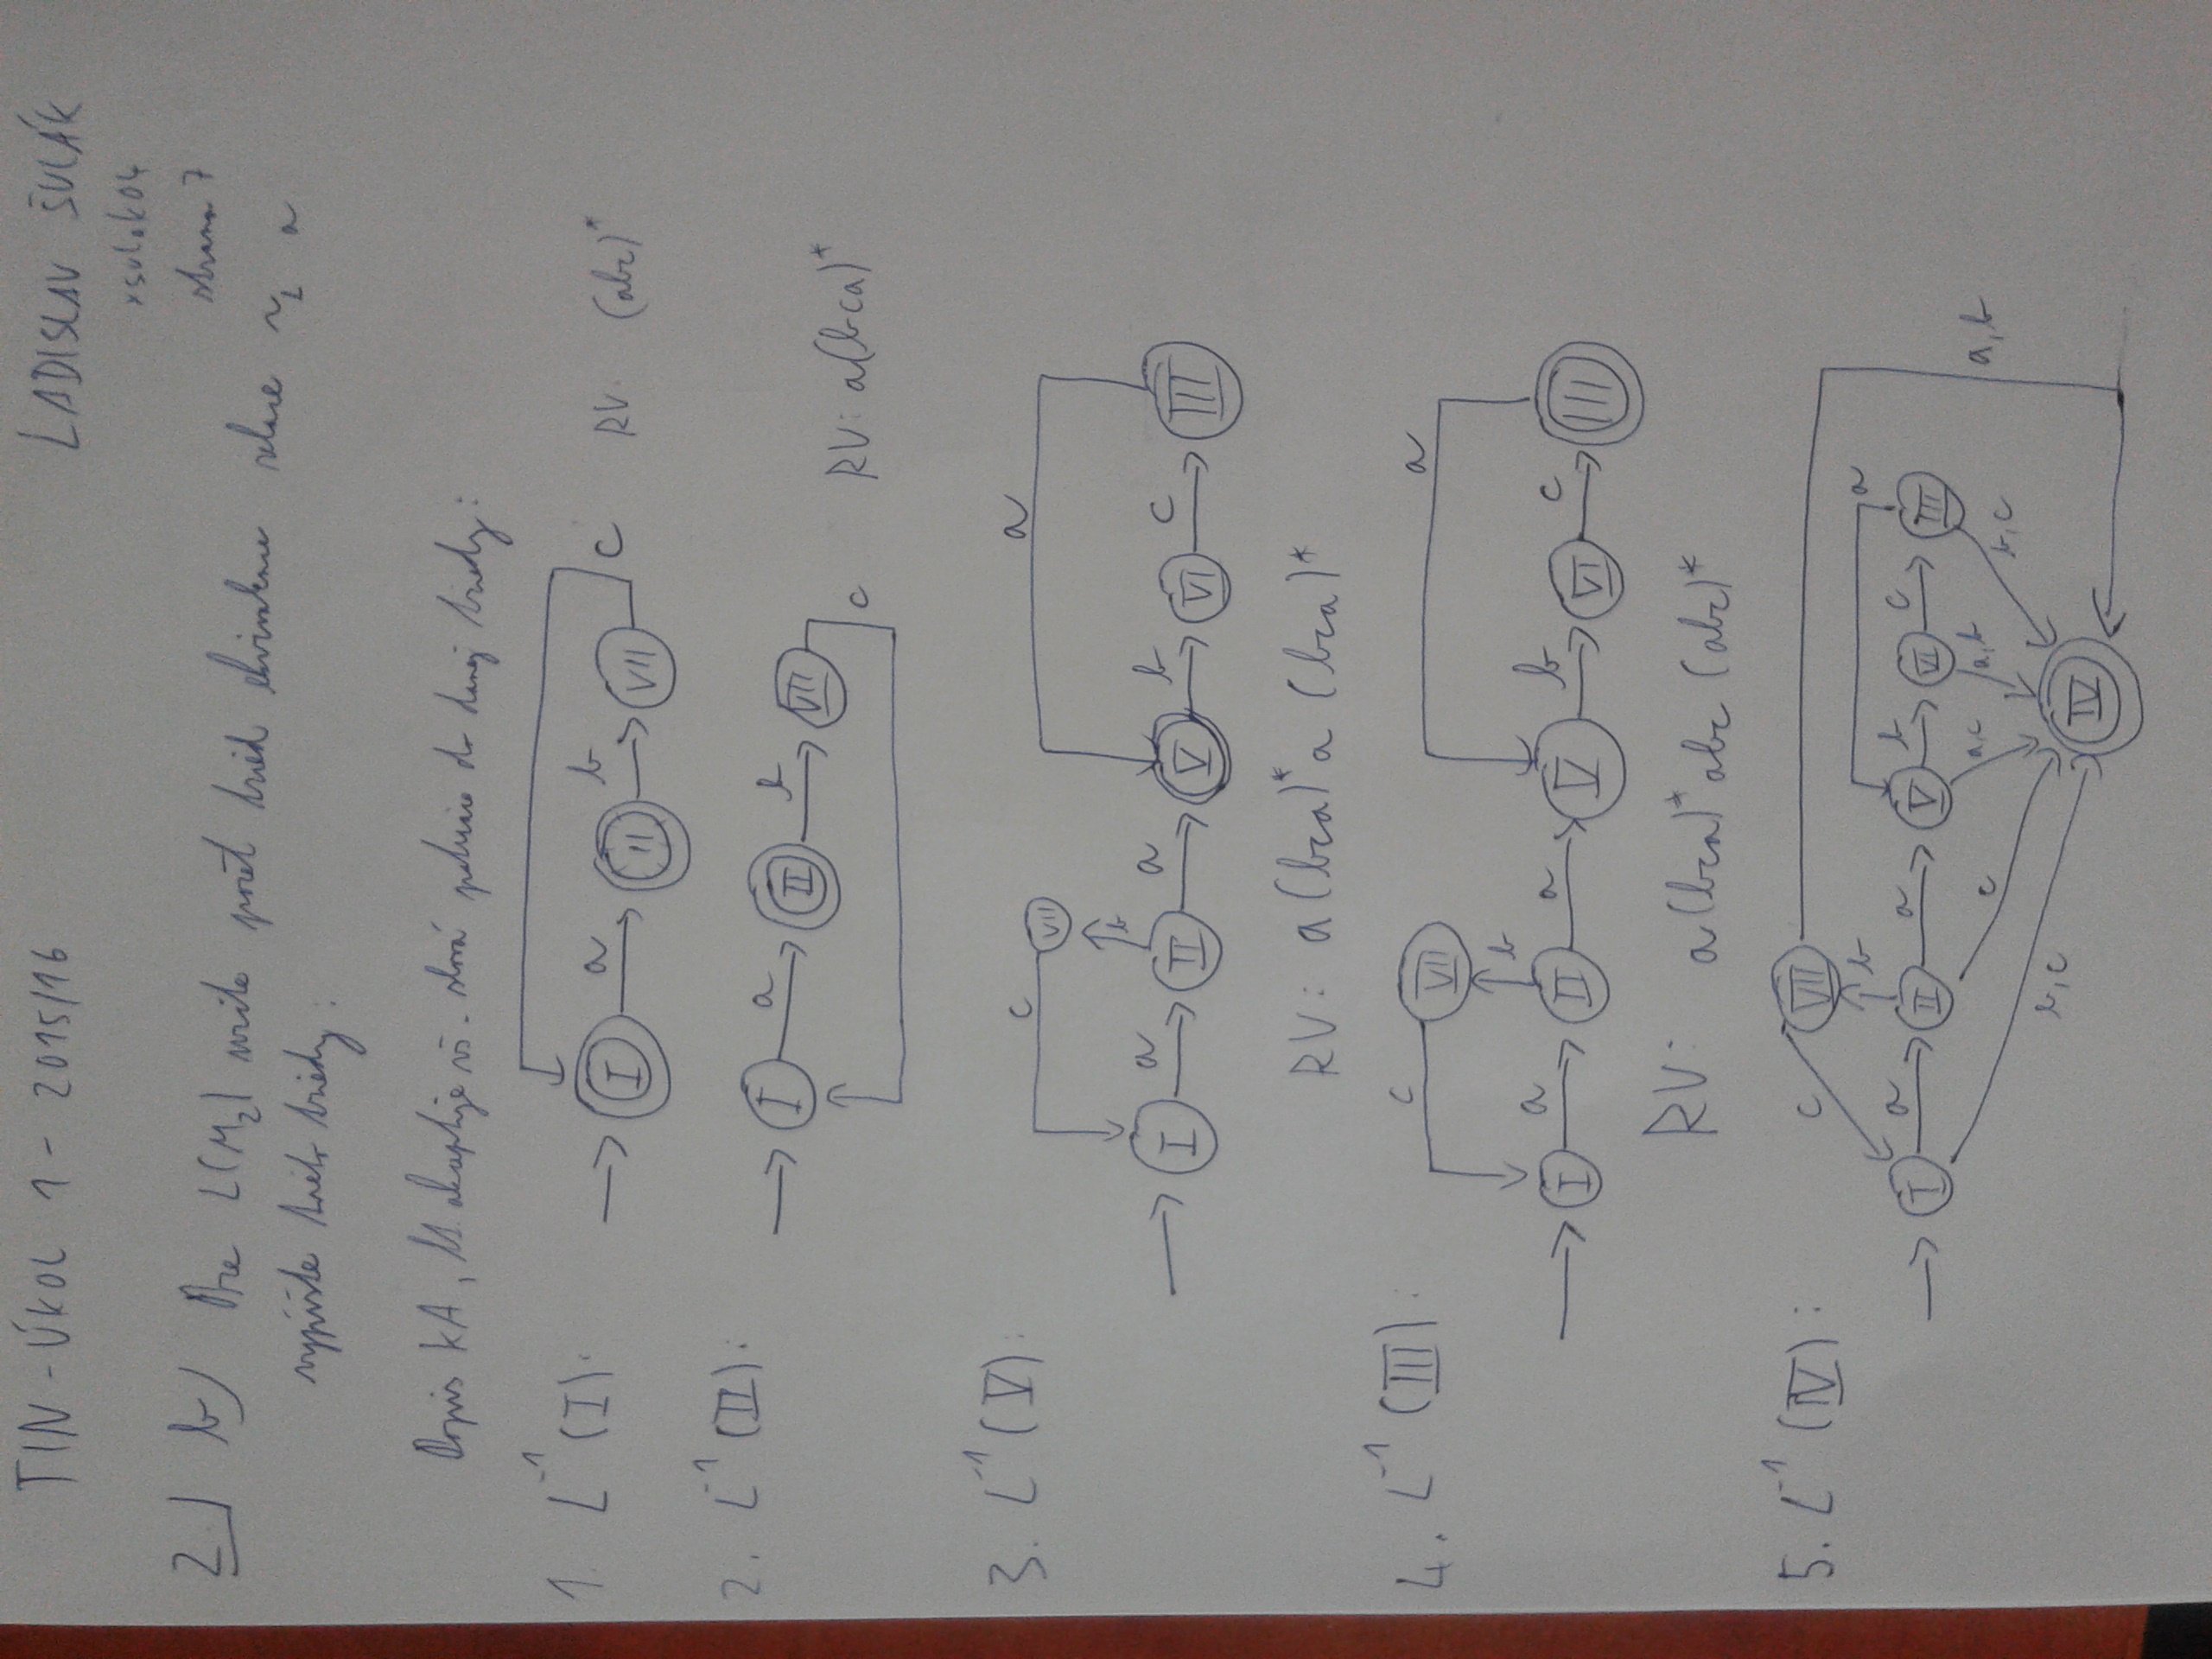 TIN - ÚKOL 1 - 2015/16
LADISLAV ŠULÁK
xsulak04
strana 7
2.) b) Pre L(M₂) určite počet tried ekvivalencie relace ~L a
vypíšte tieto triedy:
Popis KA, kt. akceptuje vš. slová patriace do danej triedy:
1. L⁻¹(I):
I a II b VII c
RV: (abc)*
2. L⁻¹(II):
I a II b VII c
RV: a(bca)*
3. L⁻¹(V):
c VII a
b
I a II a V b VI c III
RV: a(bca)*a(bca)*
4. L⁻¹(III):
c VII a
b
I a II a V b VI c III
RV: a(bca)*abc(abc)*
5. L⁻¹(IV):
c VII
b a
I a II a V b VI c III
c a,c a,b b,c a,b
b,c
IV